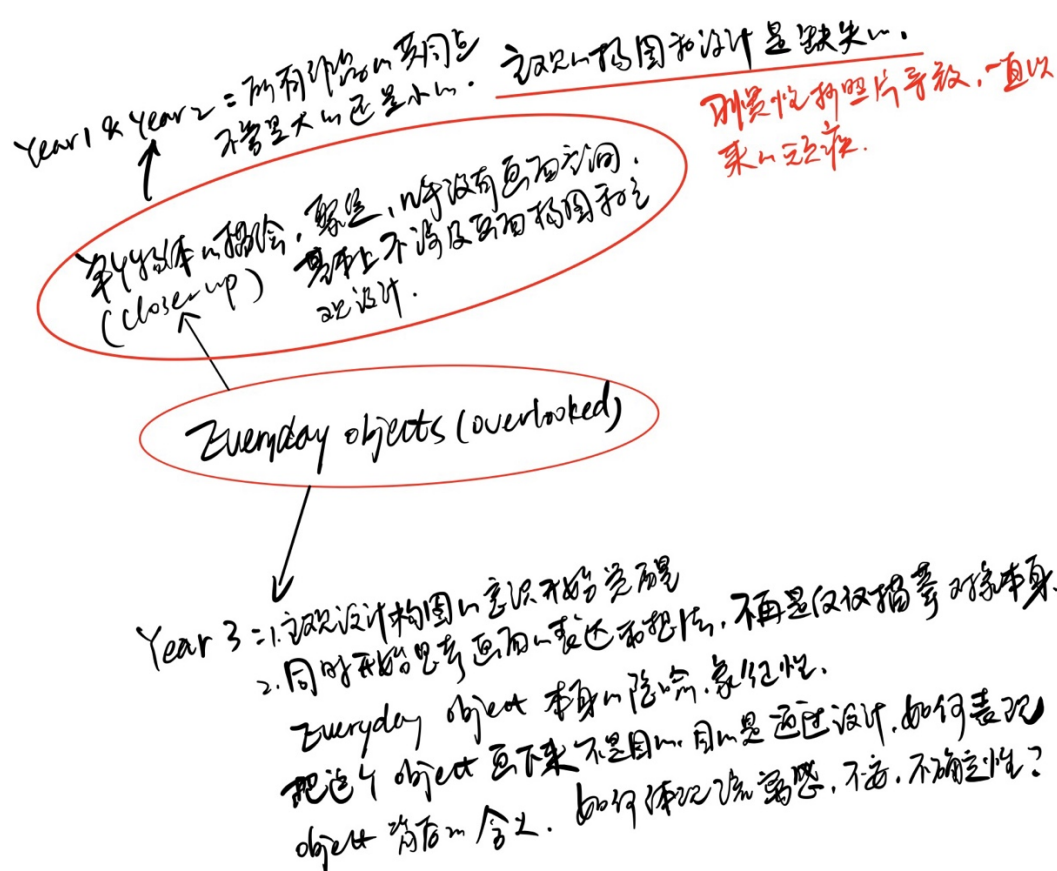 Year1 & Year2 : 所有作品的共同点
不管是大的还是小的. 主观的构图和设计是缺失的.
惯性拍照片导致, 一直以
来的顽疾.
单个物体的描绘, 聚焦, 几乎没有画面空间.
(close-up) 基本上不涉及画面构图和主
观设计.
Everyday objects (overlooked)
Year 3 : 1. 主观设计构图的意识开始觉醒
2. 同时开始思考画面的表达和想法, 不再是仅仅描摹对象本身.
Everyday object 本身的隐喻. 象征性.
把这个 object 画下来不是目的. 目的是通过设计, 如何表现
object 背后的含义. 如何体现疏离感, 不安, 不确定性?